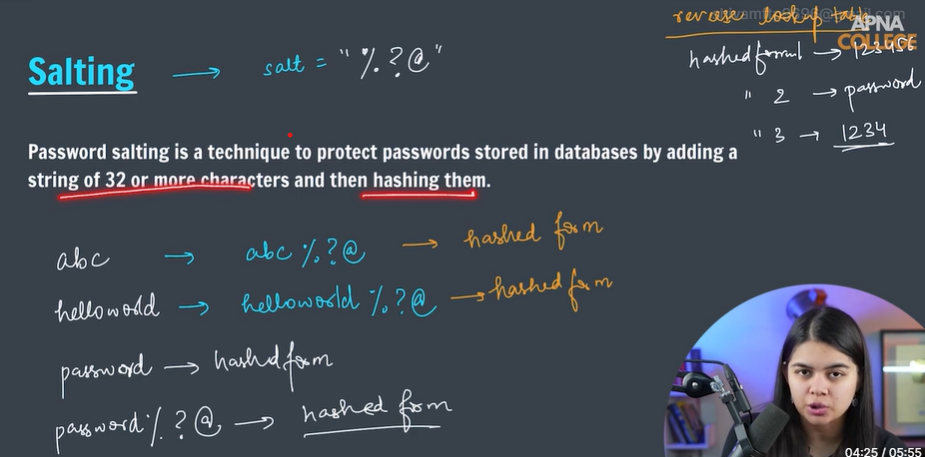 reverse lookup table
APNA
COLLEGE
Salting → salt = "%?@"
hashedform1 → 123456
" 2 → password
" 3 → 1234
Password salting is a technique to protect passwords stored in databases by adding a
string of 32 or more characters and then hashing them.
abc → abc%?@ → hashed form
helloworld → helloworld%?@ → hashed form
password → hashed form
password%?@ → hashed form
04:25 / 05:55